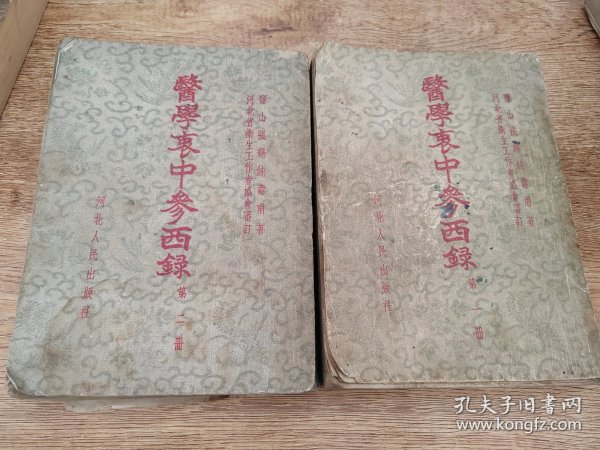 鹽山張錫純壽甫著
河北省衛生工作者協會審訂
醫學衷中參西錄
第 冊
河北人民出版社
鹽山張錫純壽甫著
河北省衛生工作者協會審訂
醫學衷中參西錄
第一冊
河北人民出版社
孔夫子旧书网
www.kongfz.com